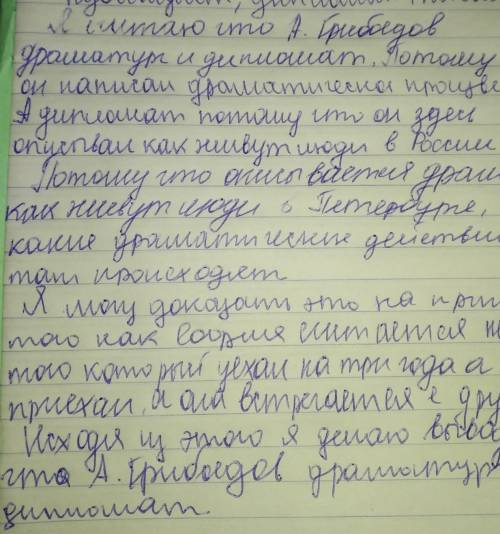 дипломат
Я считаю что А. Грибоедов
драматург и дипломат. Потому
он написал драматическое произве
А дипломат потому что он здесь
описывал как живут люди в России
Потому что описывается драм
как живут люди в Петербурге,
какие драматические действи
там происходят
Я могу доказать это на при
того как Софья считается не
того который уехал на три года а
приехал, а она встречается с дру
Исходя из этого я делаю выво
что А. Грибоедов драматург
дипломат.